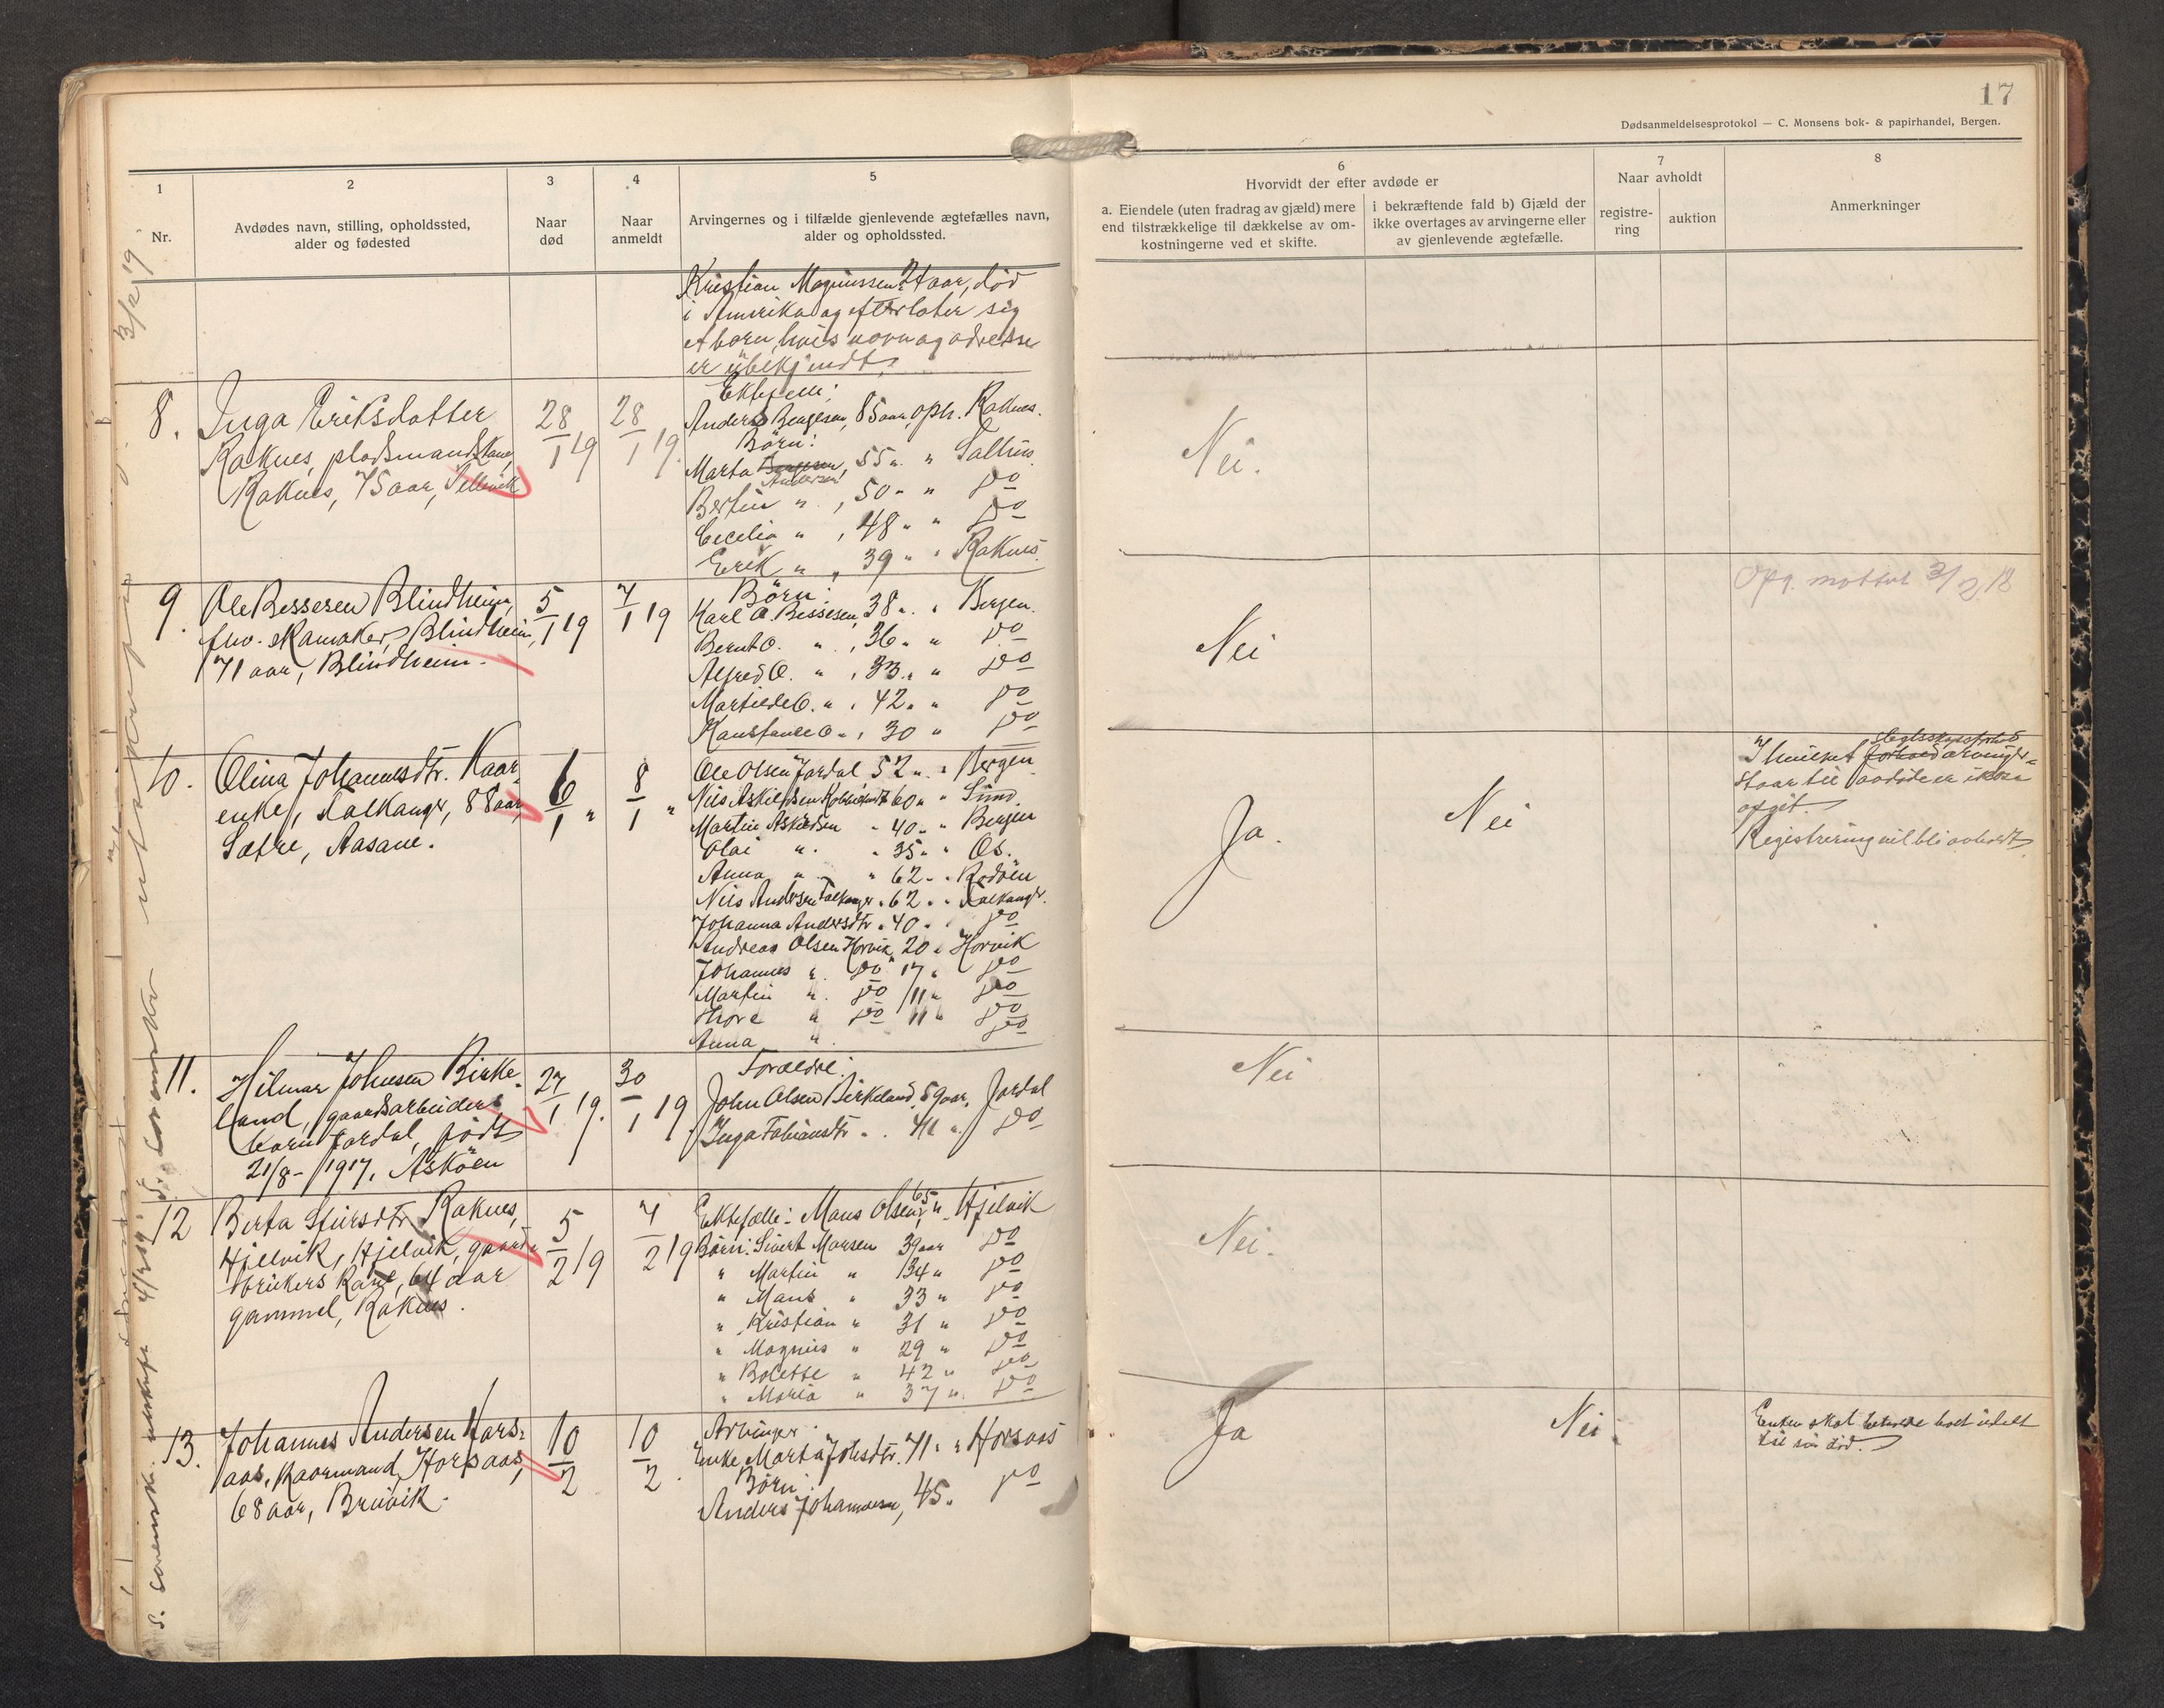 17
Dødsanmeldelsesprotokol — C. Monsens bok- & papirhandel, Bergen.
1
Nr.
2
Avdødes navn, stilling, opholdssted,
alder og fødested
3
Naar
død
4
Naar
anmeldt
5
Arvingernes og i tilfælde gjenlevende ægtefælles navn,
alder og opholdssted.
6
Hvorvidt der efter avdøde er
a. Eiendele (uten fradrag av gjæld) mere
end tilstrækkelige til dækkelse av om-
kostningerne ved et skifte.
i bekræftende fald b) Gjæld der
ikke overtages av arvingerne eller
av gjenlevende ægtefælle.
7
Naar avholdt
registre-
ring
auktion
8
Anmerkninger
3/2 19
Kristian Magnussen aar, død
i Amerika og efterlater sig
børn, hvis navn og adresse
er ubekjendt.
8.
Inga Eriksdatter
Raknes, pladsmandskone,
Raknes, 75 aar,
28/1 19
28/1 19.
Ektefelle:
Anders Bengtsen, 85 aar, oph. Raknes.
Børn:
Marta Andersen, 55 " " Salhus.
Bertin " , 50 " " do
Cecelia " , 48 " " do
Erik " , 39 " " Raknes.
Nei.
9.
Ole Bessesen Blindheim,
fhv. skomaker, Blindheim,
71 aar, Blindheim.
5/1 19
7/1 19
Børn:
Karl O. Bessesen, 38 " " Bergen.
Bernt O. " , 36 " " do
Alfred O. " , 33 " " do
O. " , 42 " " do
O " , 30 " do
Nei
Opg. mottat 3/2
10.
Olina Johannesdtr. Kaar-
enke, Kalkangr, 88 aar,
Sætre, Aasane.
6/1 "
8/1 "
Ole Olsen Jordal 52 " " Bergen
Nils Askildsen 60 " " Sund.
Martin Askildsen " 40 " " Bergen
Olai " " 35 " " Os.
Anna " " 62 " "
Nils Andersen " 62 " " Kalkangr.
Johanna Andersdtr " 40 " do
Andreas Olsen Horvik, 20 " Horvik
Johannes " do 17 " do
Martin " do 11 " do
Thore " do 11 " do
Anna " do
Ja.
Nei
I hvilket
staar til avdøde er ikke
opgit.
Registrering vil bli avholdt
11.
Hilmar Johnsen Birke-
land, gaardsarbeiders
barn Jordal, født
21/8 - 1917, Askøen
27/1 19.
30/1 19
Forældre:
John Olsen Birkeland, 59 aar, Jordal
Inga Fabiansdtr " . 41 " do
Nei
12
Berta Sjursdtr Raknes,
Hjelvik, Hjelvik, gaard-
brukers kone, 64 aar
gammel, Raknes.
5/2 19
7/2 19
Ektefælle: Mans Olsen, 65 " Hjelvik
Børn: Sivert Monsen 39 aar do
" Martin " 34 " do
" Mans " 33 " do
" Kristian " 31 " do
" Magnus " 29 " do
" Bolette " 42 " do
" Maria " 37 " do
Nei.
13.
Johannes Andersen Hors-
aas, Kaarmand, Horsaas,
68 aar, Bruvik.
10/2
10/2.
Arvinger:
Enke, Marta Johsdtr. 71 " " Horsaas
Børn:
Anders Johannesen, 45 " do
Ja
Nei.
Enken skal beholde boet udelt
til sin død.